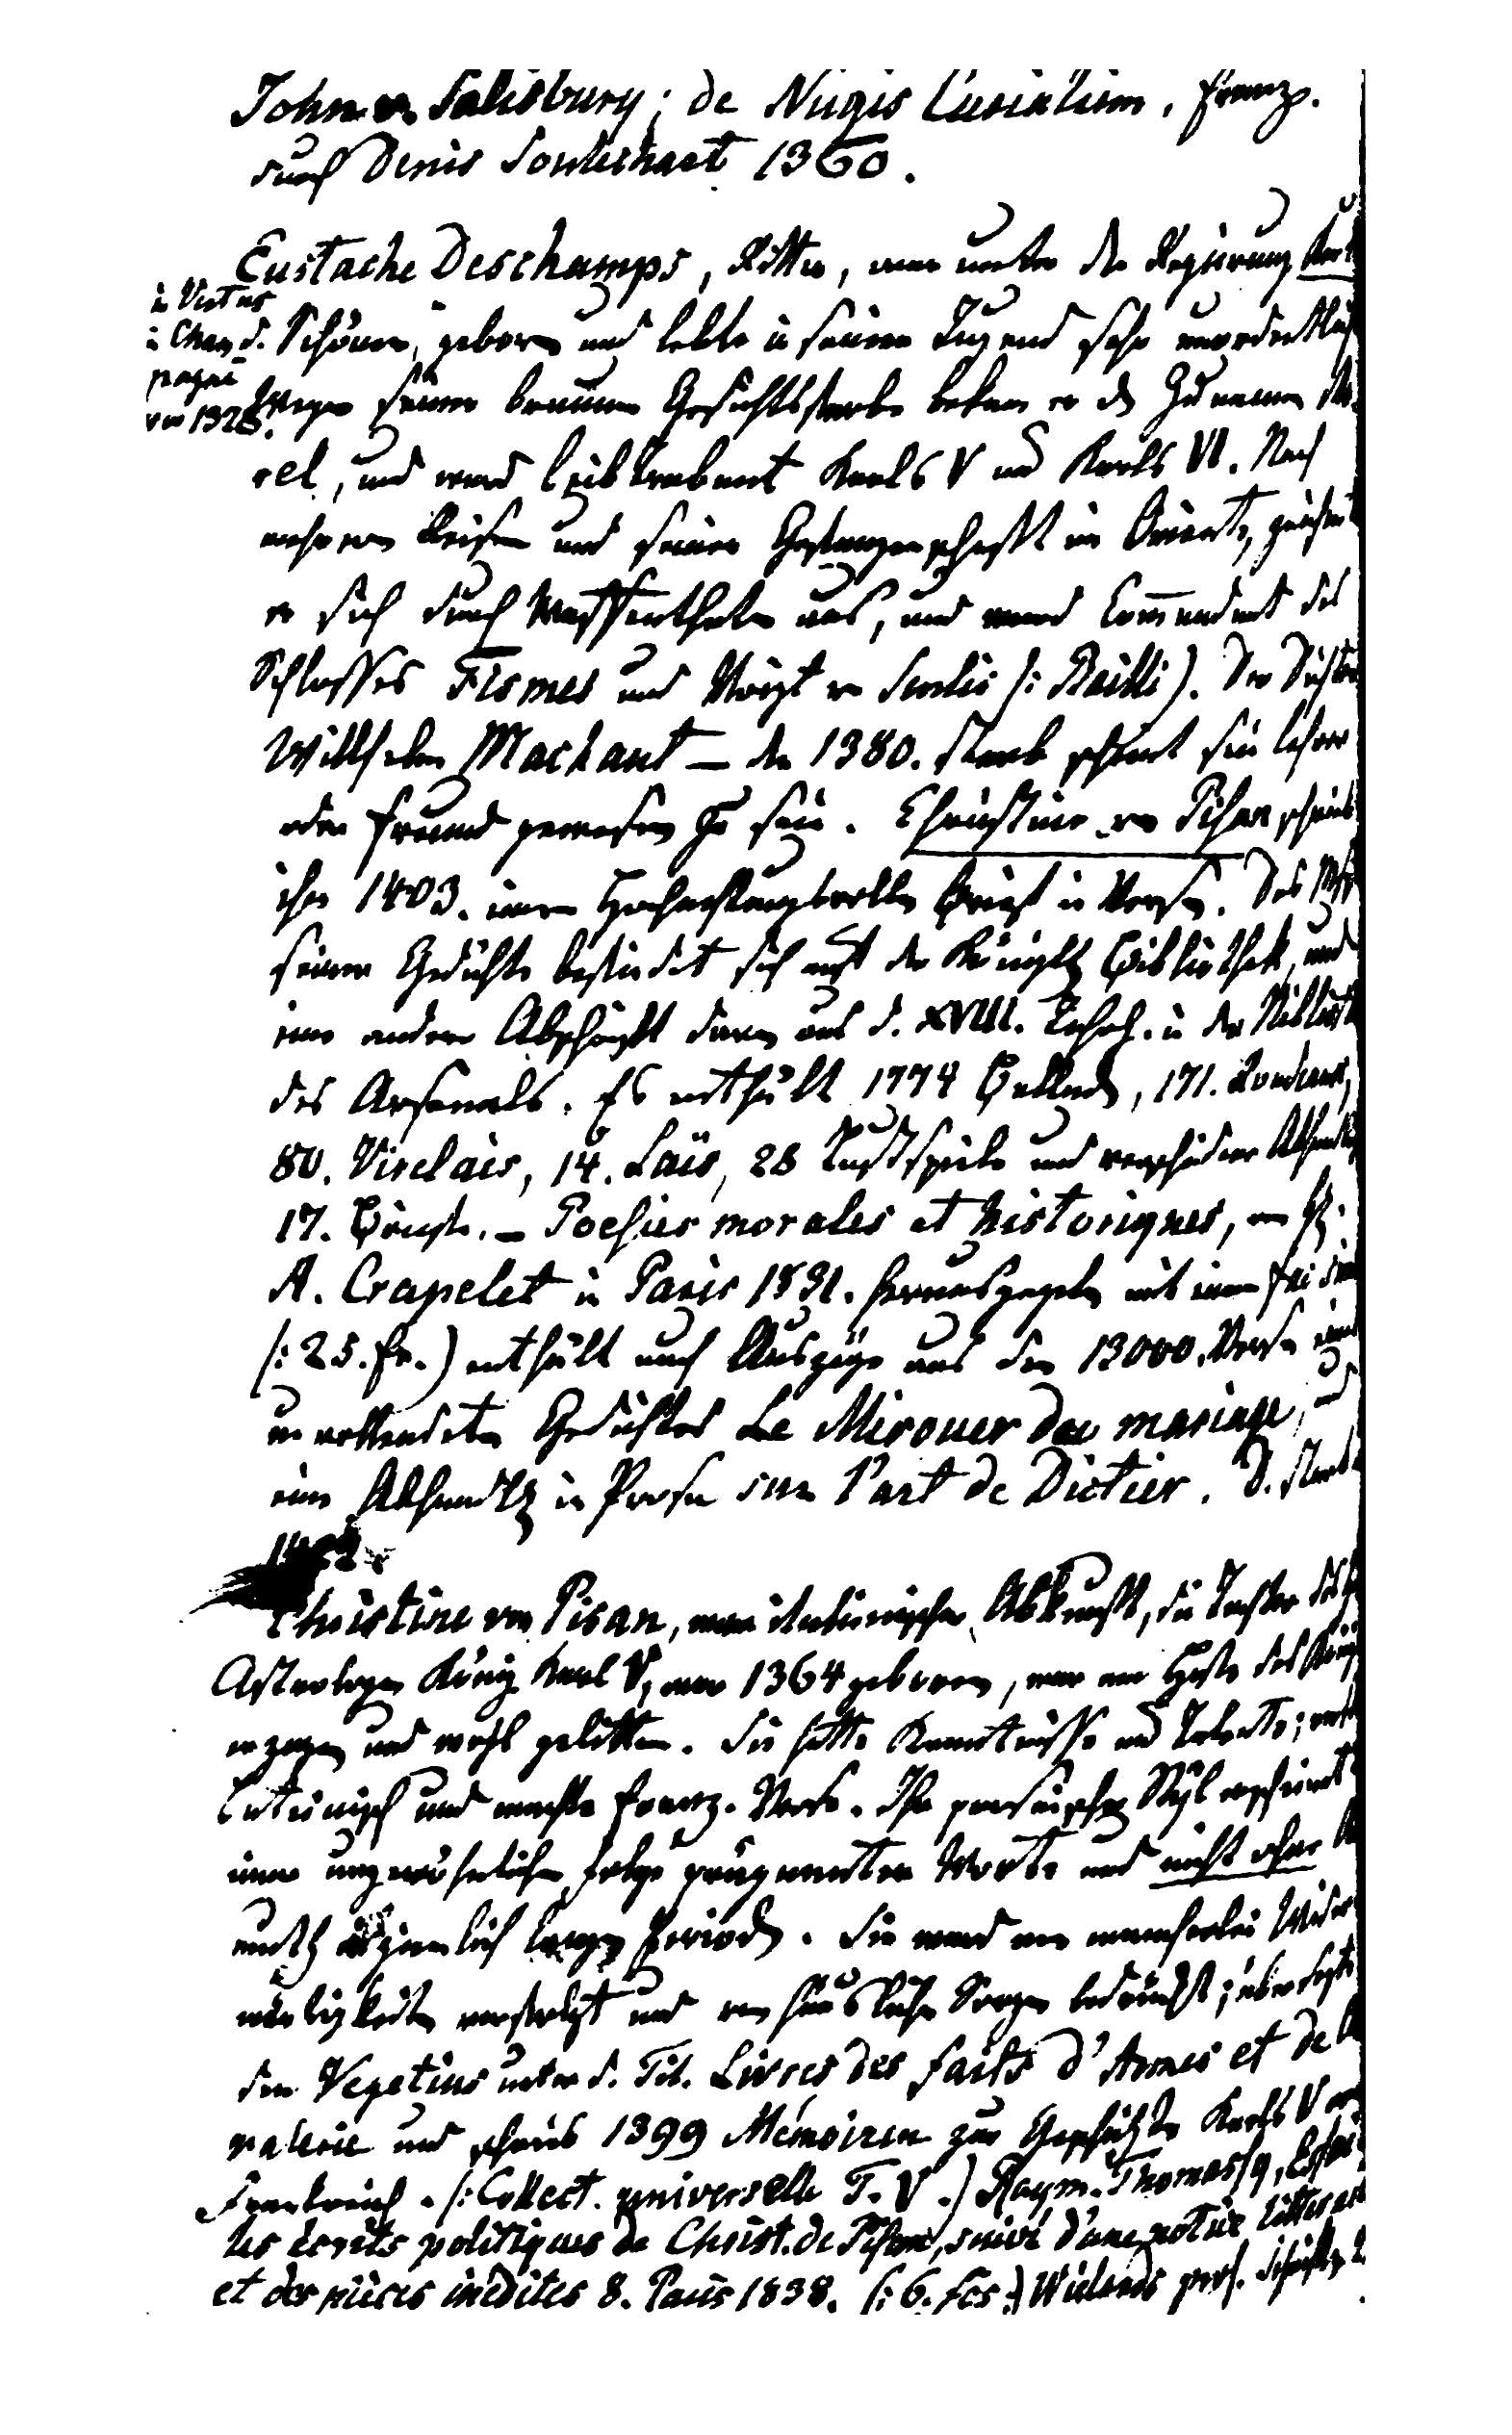 John v. Salisbury; de Nugis Curialium, franz.
durch Denis Soulechart 1360.
Eustache Deschamps, Ritter, war unter der Regierung Karl
in Vertus
in Cham
pagne
vor 1328.
d. Schönen, geboren und lebte in seiner Jugend sehr unordentlich
Wegen seiner braunen Gesichtsfarbe bekam er den Zunamen Mo
rel, und ward Leibtrabant Karls V und Karls VI. Nach
mehreren Reisen und seiner Gefangenschaft im Orient, zeichnet
er sich durch Waffenthaten aus, und ward Commendant des
Schlosses Fismes und Voigt v. Senlis (: Bailli). Der Dichter
Willhelm Machaut — der 1380. starb scheint sein Lehrer
oder Freund gewesen zu sein. Christine von Pisan schrieb
ihm 1403. einen Hochachtungsvollen Brief in Versen. Das Mss
seiner Gedichte befindet sich auf der Königl. Bibliothek, und
eine andere Abschrift davon aus d. XVIII. Jahrh. in der Biblioth
des Arsenals. Es enthält 1774 Balladen, 171. Rondeaux,
80. Virelais, 14. Lais, 28 Lustspiele und verschiedene Abhandl
17. Briefe. — Poesies morales et historiques, von
A. Crapelet in Paris 1831. herausgegeben mit einem Facsim
(: 25. fr.) enthält auch Auszüge aus den 13000. Versen eines
unvollendeten Gedichtes Le Mirouer du mariage, und
eine Abhandlg in Prosa sur l'art de Dictier. D. starb
Christine von Pisan, war italienischer Abkunft, die Tochter des
Astrologen König Karl V, war 1364 geboren, war am Hofe des Königs
erzogen und wohl gelitten. Sie hatte Kenntnisse und Talente;
Lateinisch und machte franz. Verse. Ihr prosaischer Styl erscheint
einer ungewöhnlichen Folge prägnanter Worte und nicht ohne An
muth in ziemlich langen Perioden. Sie ward von mancherlei Wider
wärtigkeiten verfolgt und von häuslichen Sorgen bedrückt; übersetzte
den Vegetius unter d. Tit. Livres des faits d'Armes et de
valerie und schrieb 1399 Mémoiren zur Geschichte Karls V von
Frankreich. (: Collect. universelle T. V.) Raym. Thomassy, Essai
les écrits politiques de Christ. de Pisan, suivi d'une notice litteraire
et des pièces inédites 8. Paris 1838. (: 6. fcs.) Wielands pros. Schriften 2.